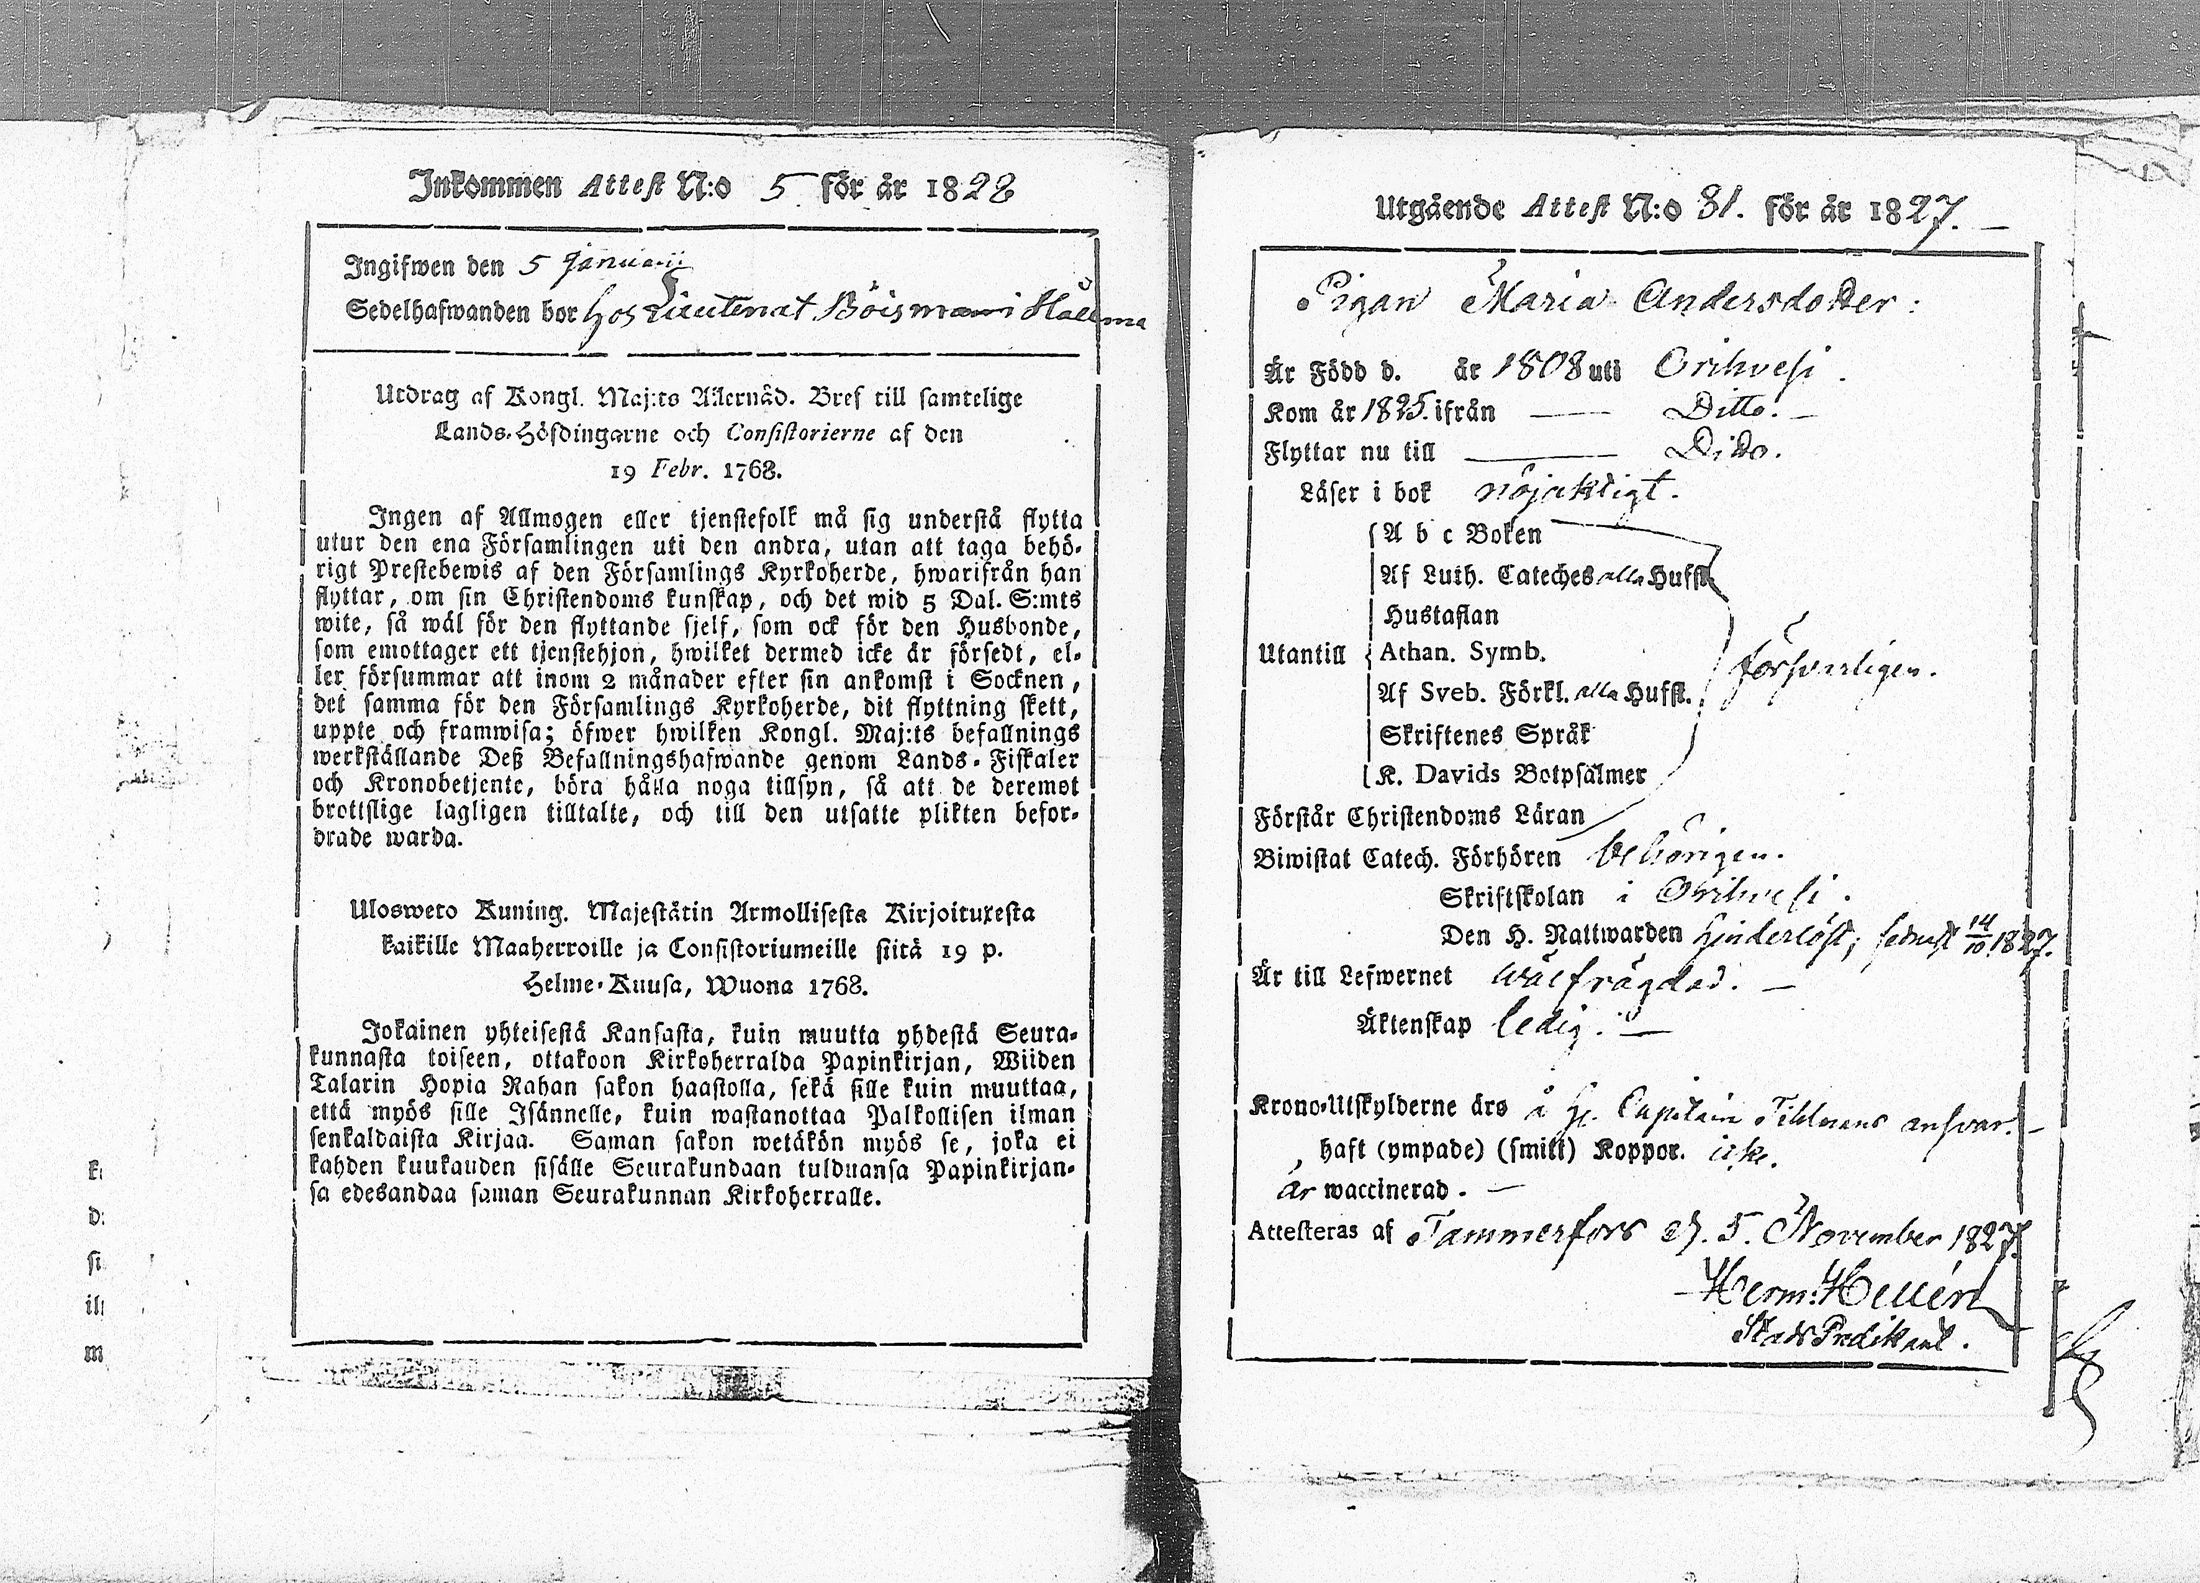 Inkommen Attest N:o 5 för år 1828
Ingifwen den 5 Januarii
Sedelhafwanden bor hos Lieutenat Böisman i Hallma
Utdrag af Kongl. Maj:ts Allernåd. Bref till samtelige
Lands-Höfdingarne och Consistorierne af den
19 Febr. 1768.
Ingen af Allmogen eller tjenstefolk må sig understå flytta
utur den ena Församlingen uti den andra, utan att taga behö-
rigt Prestebewis af den Församlings Kyrkoherde, hwarifrån han
flyttar, om sin Christendoms kunskap, och det wid 5 Dal. S:mts
wite, så wäl för den flyttande sjelf, som ock för den Husbonde,
som emottager ett tjenstehjon, hwilket dermed icke är försedt, el-
ler försummar att inom 2 månader efter sin ankomst i Socknen,
det samma för den Församlings Kyrkoherde, dit flyttning skett,
uppte och framwisa; öfwer hwilken Kongl. Maj:ts befallnings
werkställande Deß Befallningshafwande genom Lands-Fiskaler
och Kronobetjente, böra hålla noga tillsyn, så att de deremot
brottslige lagligen tilltalte, och till den utsatte plikten befor-
drade warda.
Ulosweto Kuning. Majestätin Armollisesta Kirjoituxesta
kaikille Maaherroille ja Consistoriumeille siitä 19 p.
Helme-Kuusa, Wuona 1768.
Jokainen yhteisestä Kansasta, kuin muutta yhdestä Seura-
kunnasta toiseen, ottakoon Kirkoherralda Papinkirjan, Wiiden
Talarin Hopia Rahan sakon haastolla, sekä sille kuin muuttaa,
että myös sille Isännelle, kuin wastanottaa Palkollisen ilman
senkaldaista Kirjaa. Saman sakon wetäkön myös se, joka ei
kahden kuukauden sisälle Seurakundaan tulduansa Papinkirjan-
sa edesandaa saman Seurakunnan Kirkoherralle.
Utgående Attest N:o 81. för år 1827.
Pigan Maria Andersdotter:
Är Född d. år 1808 uti Orihvesi.
Kom år 1825. ifrån — Ditto. —
Flyttar nu till — Ditto.
Läser i bok nöjaktigt.
A b c Boken
Af Luth. Cateches alla Hufst.
Hustaflan
Utantill Athan. Symb. försvarligen.
Af Sveb. Förkl. alla Hufst.
Skriftenes Språk
K. Davids Botpsalmer
Förstår Christendoms Läran
Biwistat Catech. Förhören behörigen.
Skriftskolan i Orihvesi.
Den H. Nattwarden hinderlöst, sednast 14/10 1827.
Är till Lefwernet wälfrägdad. —
Äktenskap ledig. —
Krono-Utskylderne äro å H. Capitain Tihlmans answar. —
haft (ympade) (smitt) Koppor. icke.
är waccinerad. —
Attesteras af Tammerfors d. 5. November 1827.
Herm: Hellén
Stads Predikant.